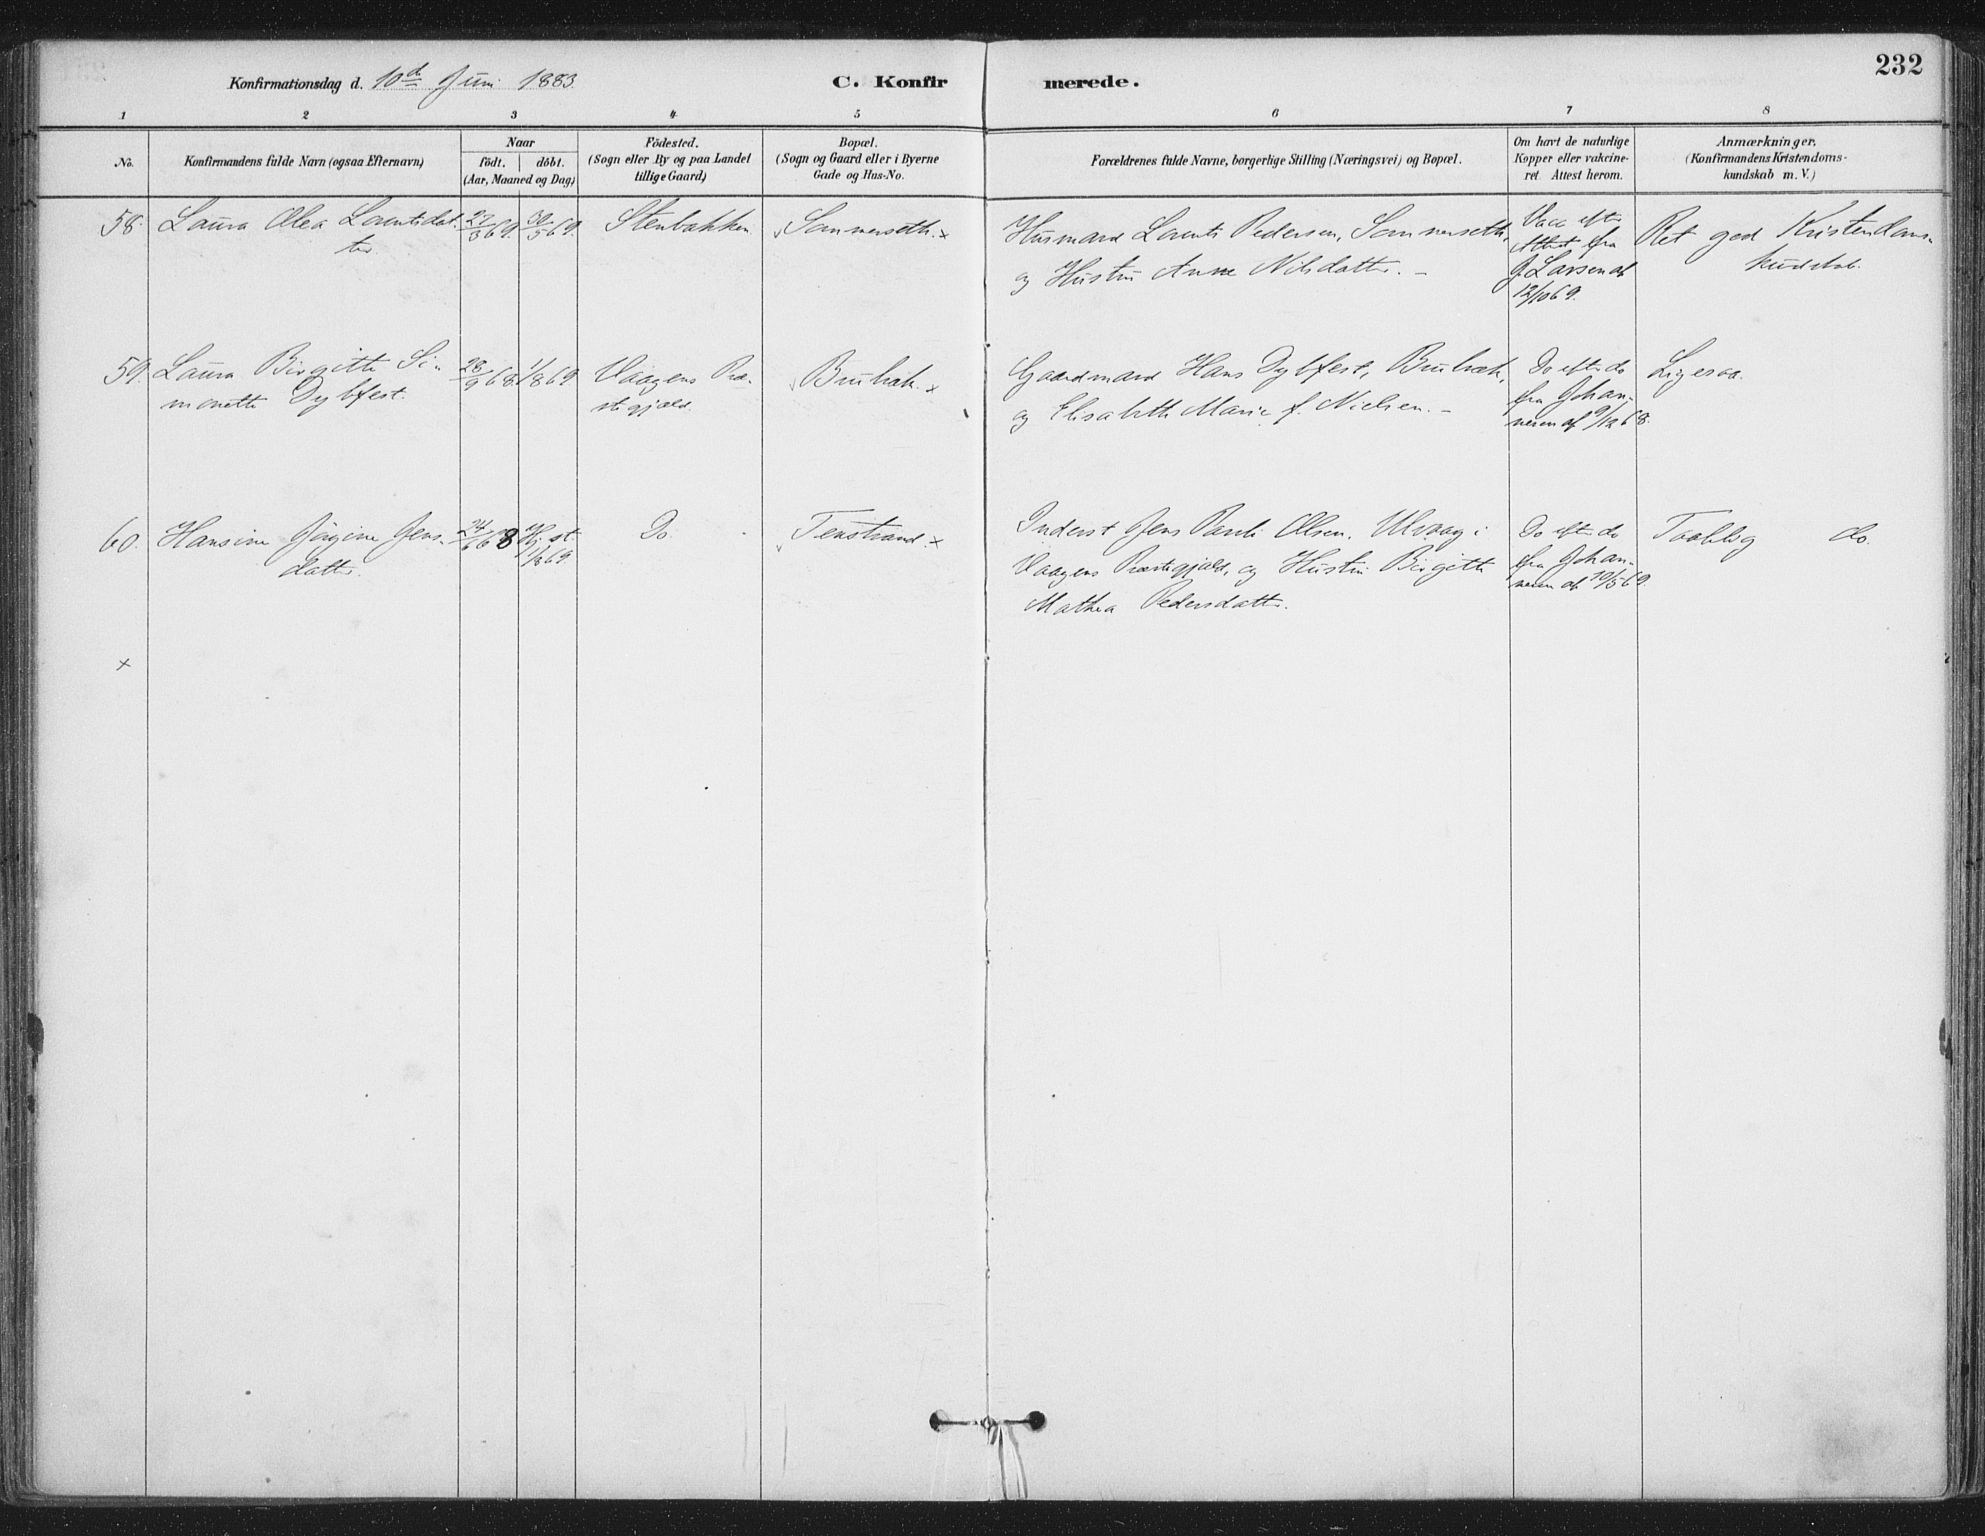 232
Konfirmationsdag d. 10de Juni 1883.
C. Konfirmerede.
1 2 3 4 5 6 7 8
No.
Konfirmandens fulde Navn (ogsaa Efternavn)
Naar
födt. döbt.
(Aar, Maaned og Dag)
Födested.
(Sogn eller By og paa Landet
tillige Gaard)
Bopæl.
(Sogn og Gaard eller i Byerne
Gade og Hus-No.
Forældrenes fulde Navne, borgerlige Stilling (Næringsvei) og Bopæl.
Om havt de naturlige
Kopper eller vakcine-
ret. Attest herom.
Anmærkninger.
(Konfirmandens Kristendoms-
kundskab m. V.)
58. Laura Olea Lorntsdat-
ter.
27/3 69.
30/5 69.
Stenbakken
Sommerseth. x
Husmand Lornts Pedersen, Sommerseth,
og Hustru Anne Nilsdatter. -
Vacc efter
Attest fra
J. Larsen af
12/10 69.
Ret god Kristendoms-
kundskab.
59. Laura Birgitte Si-
monette Dybfest.
28/9 68
1/8 69
Vaagens Præ-
stegjæld.
x
Gaardmand Hans Dybfest,
og Elisabeth Marie f. Nielsen. -
Do efter do
fra Johan-
nesen af 9/12 68.
Ligesaa.
60. Hansine Jörgine Jens-
datter.
24/6 68
Hj. st.
69.
Do.
Tenstrand. x
Inderst Jens Olsen, Ulvaag i
Vaagens Præstegjæld, og Hustru Birgitte
Mathea Pedersdatter.
Do efter do
fra Johan-
nesen af 10/5 69.
Taalelig do.
x